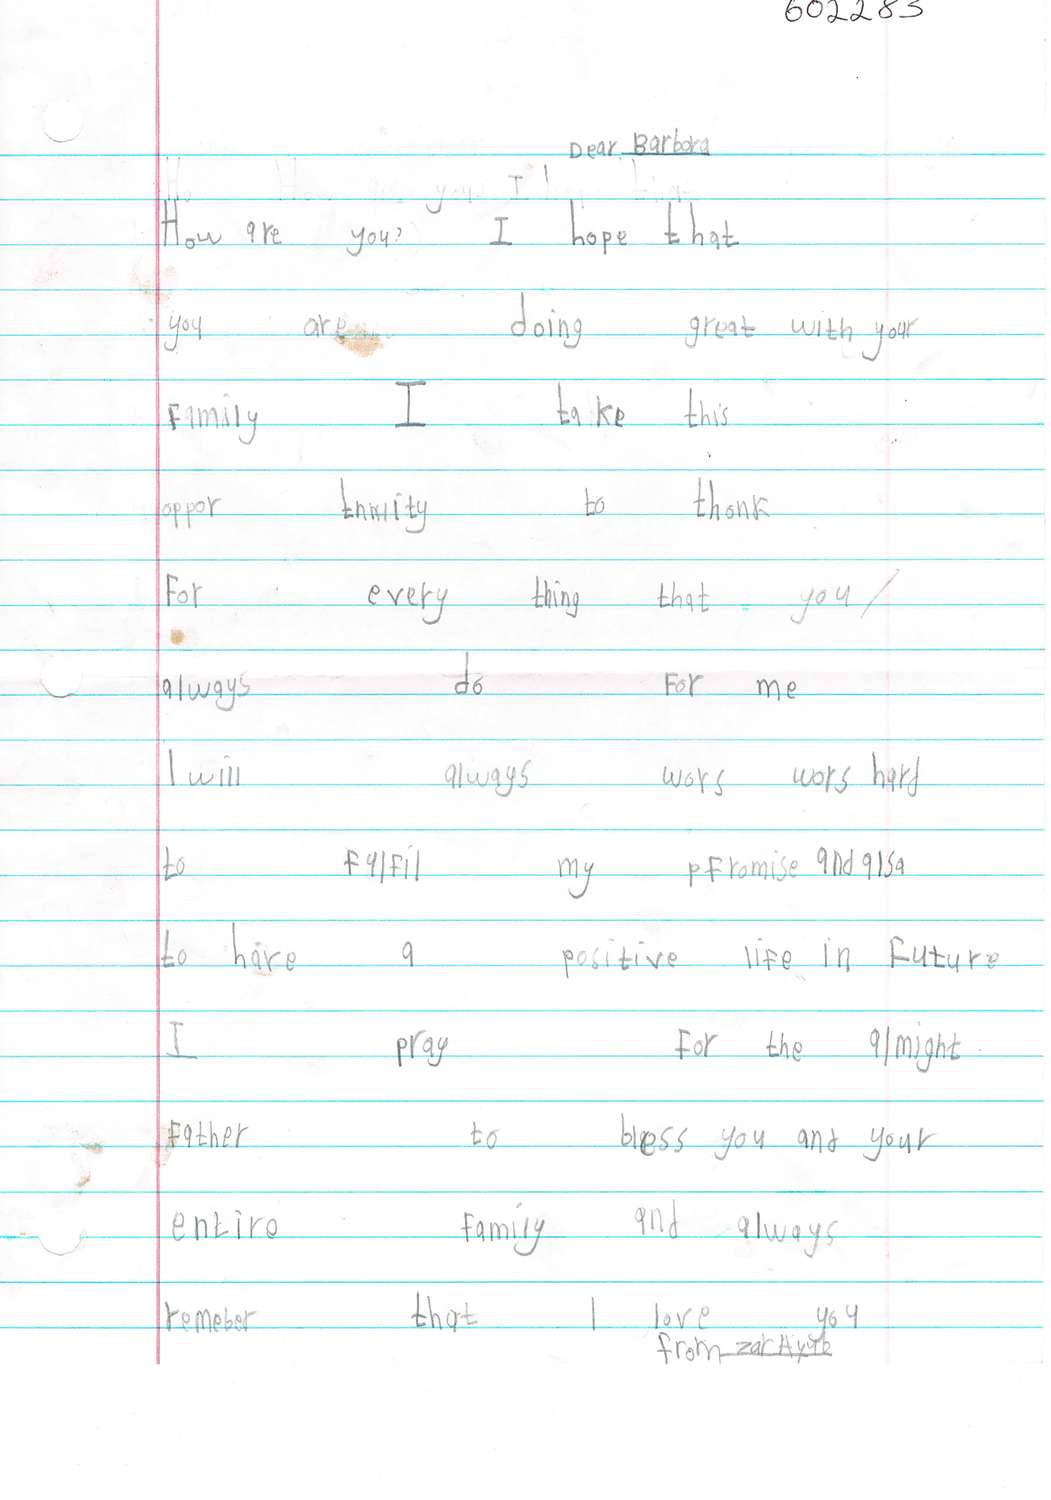 602283
Dear Barbora
How are you? I hope that
you are doing great with your
Family I take this
oppor tnuity to thonk
For every thing that you/
always do For me
I will always wors wors hard
to Fulfil my pfromise and alsa
to have a positive life in Future
I pray For the almight
Father to bless you and your
entire Family and always
remeber that I love you
from zar Ayub